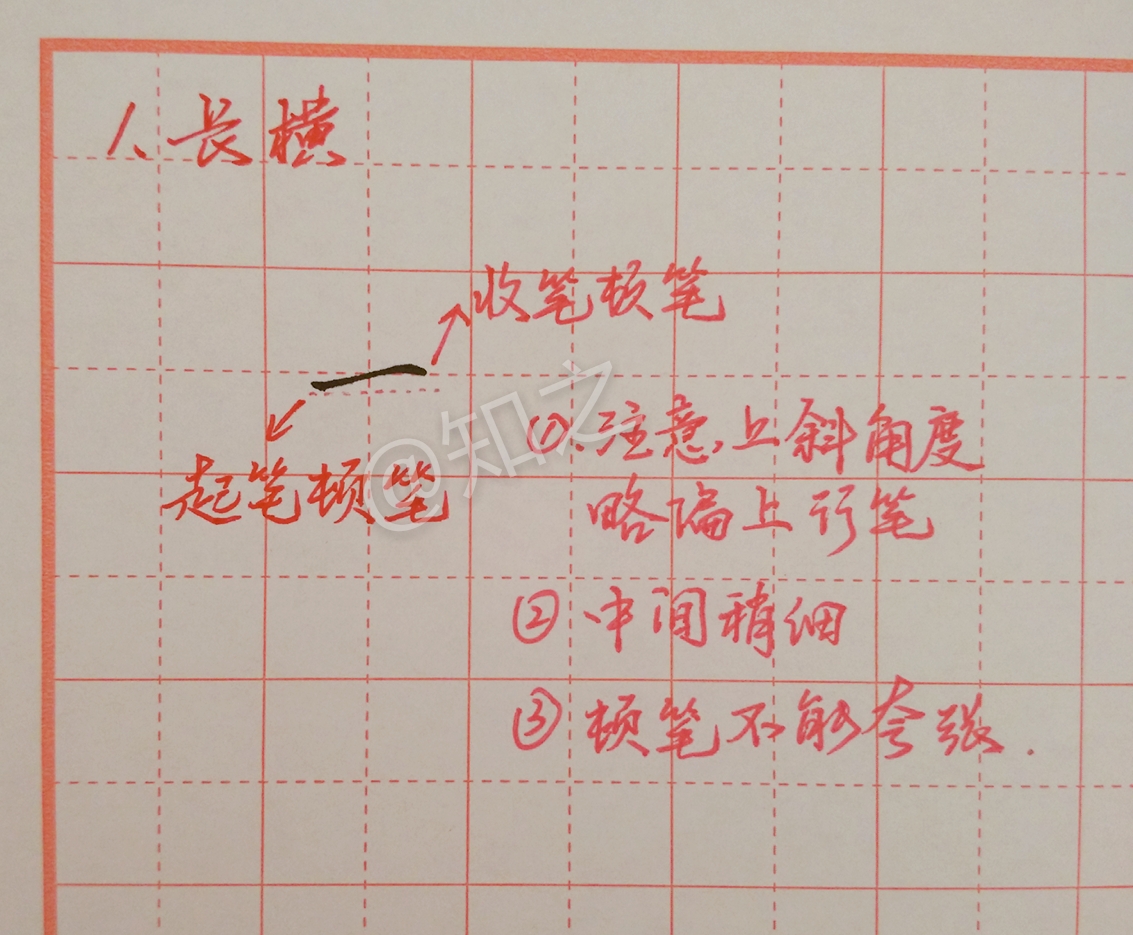 1、長横
收笔顿笔
起笔顿笔
①、注意上斜角度
略偏上行笔
②中间稍细
③顿笔不能夸张.
@知之